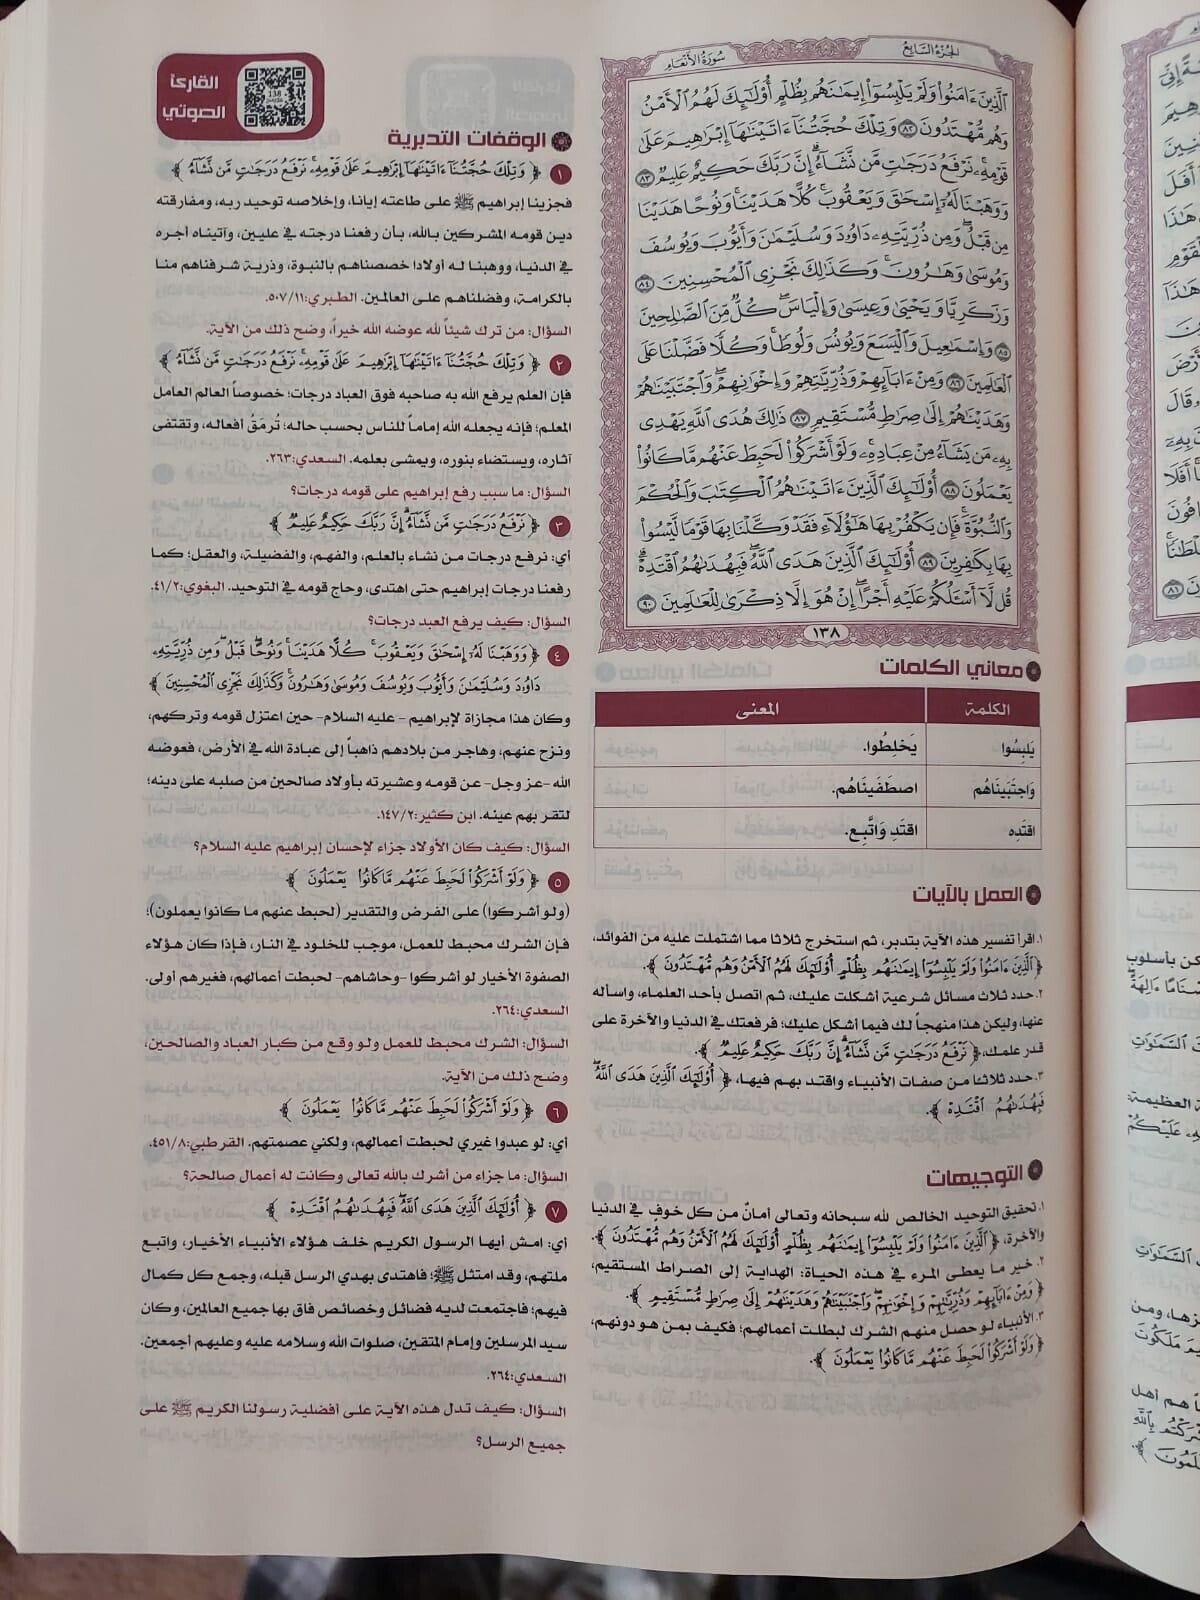 الجزء السابع
سورة الأنعام
ٱلَّذِينَ ءَامَنُواْ وَلَمْ يَلْبِسُوٓاْ إِيمَٰنَهُم بِظُلْمٍ أُوْلَٰٓئِكَ لَهُمُ ٱلْأَمْنُ
وَهُم مُّهْتَدُونَ ٨٢ وَتِلْكَ حُجَّتُنَآ ءَاتَيْنَٰهَآ إِبْرَٰهِيمَ عَلَىٰ
قَوْمِهِۦ نَرْفَعُ دَرَجَٰتٍ مَّن نَّشَآءُ إِنَّ رَبَّكَ حَكِيمٌ عَلِيمٌ ٨٣
وَوَهَبْنَا لَهُۥٓ إِسْحَٰقَ وَيَعْقُوبَ كُلًّا هَدَيْنَا وَنُوحًا هَدَيْنَا
مِن قَبْلُ وَمِن ذُرِّيَّتِهِۦ دَاوُۥدَ وَسُلَيْمَٰنَ وَأَيُّوبَ وَيُوسُفَ
وَمُوسَىٰ وَهَٰرُونَ وَكَذَٰلِكَ نَجْزِى ٱلْمُحْسِنِينَ ٨٤
وَزَكَرِيَّا وَيَحْيَىٰ وَعِيسَىٰ وَإِلْيَاسَ كُلٌّ مِّنَ ٱلصَّٰلِحِينَ
٨٥ وَإِسْمَٰعِيلَ وَٱلْيَسَعَ وَيُونُسَ وَلُوطًا وَكُلًّا فَضَّلْنَا عَلَى
ٱلْعَٰلَمِينَ ٨٦ وَمِنْ ءَابَآئِهِمْ وَذُرِّيَّٰتِهِمْ وَإِخْوَٰنِهِمْ وَٱجْتَبَيْنَٰهُمْ
وَهَدَيْنَٰهُمْ إِلَىٰ صِرَٰطٍ مُّسْتَقِيمٍ ٨٧ ذَٰلِكَ هُدَى ٱللَّهِ يَهْدِى
بِهِۦ مَن يَشَآءُ مِنْ عِبَادِهِۦ وَلَوْ أَشْرَكُواْ لَحَبِطَ عَنْهُم مَّا كَانُواْ
يَعْمَلُونَ ٨٨ أُوْلَٰٓئِكَ ٱلَّذِينَ ءَاتَيْنَٰهُمُ ٱلْكِتَٰبَ وَٱلْحُكْمَ
وَٱلنُّبُوَّةَ فَإِن يَكْفُرْ بِهَا هَٰٓؤُلَآءِ فَقَدْ وَكَّلْنَا بِهَا قَوْمًا لَّيْسُواْ
بِهَا بِكَٰفِرِينَ ٨٩ أُوْلَٰٓئِكَ ٱلَّذِينَ هَدَى ٱللَّهُ فَبِهُدَىٰهُمُ ٱقْتَدِهْ
قُل لَّآ أَسْـَٔلُكُمْ عَلَيْهِ أَجْرًا إِنْ هُوَ إِلَّا ذِكْرَىٰ لِلْعَٰلَمِينَ ٩٠
١٣٨
معاني الكلمات
الكلمة المعنى
يَلبِسُوا يَخلِطُوا.
وَاجتَبَينَاهُم اصطَفَينَاهُم.
اقتَدِه اقتَدِ وَاتَّبِع.
العمل بالآيات
١. اقرأ تفسير هذه الآية بتدبر، ثم استخرج ثلاثا مما اشتملت عليه من الفوائد،
﴿ٱلَّذِينَ ءَامَنُواْ وَلَمْ يَلْبِسُوٓاْ إِيمَٰنَهُم بِظُلْمٍ أُوْلَٰٓئِكَ لَهُمُ ٱلْأَمْنُ وَهُم مُّهْتَدُونَ﴾.
٢. حدد ثلاث مسائل شرعية أشكلت عليك، ثم اتصل بأحد العلماء، واسأله
عنها، وليكن هذا منهجاً لك فيما أشكل عليك؛ فرفعتك في الدنيا والآخرة على
قدر علمك، ﴿نَرْفَعُ دَرَجَٰتٍ مَّن نَّشَآءُ إِنَّ رَبَّكَ حَكِيمٌ عَلِيمٌ﴾.
٣. حدد ثلاثا من صفات الأنبياء واقتد بهم فيها، ﴿أُوْلَٰٓئِكَ ٱلَّذِينَ هَدَى ٱللَّهُ
فَبِهُدَىٰهُمُ ٱقْتَدِهْ﴾.
التوجيهات
١. تحقيق التوحيد الخالص لله سبحانه وتعالى أمانٌ من كل خوفٍ في الدنيا
والآخرة، ﴿ٱلَّذِينَ ءَامَنُواْ وَلَمْ يَلْبِسُوٓاْ إِيمَٰنَهُم بِظُلْمٍ أُوْلَٰٓئِكَ لَهُمُ ٱلْأَمْنُ وَهُم مُّهْتَدُونَ﴾.
٢. خير ما يعطى المرء في هذه الحياة: الهداية إلى الصراط المستقيم،
﴿وَمِنْ ءَابَآئِهِمْ وَذُرِّيَّٰتِهِمْ وَإِخْوَٰنِهِمْ وَٱجْتَبَيْنَٰهُمْ وَهَدَيْنَٰهُمْ إِلَىٰ صِرَٰطٍ مُّسْتَقِيمٍ﴾.
٣. الأنبياء لو حصل منهم الشرك لبطلت أعمالهم؛ فكيف بمن هو دونهم،
﴿وَلَوْ أَشْرَكُواْ لَحَبِطَ عَنْهُم مَّا كَانُواْ يَعْمَلُونَ﴾.
القارئ
الصوتي
138
الوقفات التدبرية
١ ﴿وَتِلْكَ حُجَّتُنَآ ءَاتَيْنَٰهَآ إِبْرَٰهِيمَ عَلَىٰ قَوْمِهِۦ نَرْفَعُ دَرَجَٰتٍ مَّن نَّشَآءُ﴾
فجزينا إبراهيم ﷺ على طاعته إيانا، وإخلاصه توحيد ربه، ومفارقته
دين قومه المشركين بالله، بأن رفعنا درجته في عليين، وآتيناه أجره
في الدنيا، ووهبنا له أولادا خصصناهم بالنبوة، وذرية شرفناهم منا
بالكرامة، وفضلناهم على العالمين. الطبري:٥٠٧/١١.
السؤال: من ترك شيئاً لله عوضه الله خيراً، وضح ذلك من الآية.
٢ ﴿وَتِلْكَ حُجَّتُنَآ ءَاتَيْنَٰهَآ إِبْرَٰهِيمَ عَلَىٰ قَوْمِهِۦ نَرْفَعُ دَرَجَٰتٍ مَّن نَّشَآءُ﴾
فإن العلم يرفع الله به صاحبه فوق العباد درجات؛ خصوصاً العالم العامل
المعلم؛ فإنه يجعله الله إماماً للناس بحسب حاله؛ تُرمَقُ أفعاله، وتقتفى
آثاره، ويستضاء بنوره، ويمشى بعلمه. السعدي:٢٦٣.
السؤال: ما سبب رفع إبراهيم على قومه درجات؟
٣ ﴿نَرْفَعُ دَرَجَٰتٍ مَّن نَّشَآءُ إِنَّ رَبَّكَ حَكِيمٌ عَلِيمٌ﴾
أي: نرفع درجات من نشاء بالعلم، والفهم، والفضيلة، والعقل؛ كما
رفعنا درجات إبراهيم حتى اهتدى، وحاج قومه في التوحيد. البغوي:٤١/٢.
السؤال: كيف يرفع العبد درجات؟
٤ ﴿وَوَهَبْنَا لَهُۥٓ إِسْحَٰقَ وَيَعْقُوبَ كُلًّا هَدَيْنَا وَنُوحًا قَبْلُ وَمِن ذُرِّيَّتِهِۦ
دَاوُۥدَ وَسُلَيْمَٰنَ وَأَيُّوبَ وَيُوسُفَ وَمُوسَىٰ وَهَٰرُونَ وَكَذَٰلِكَ نَجْزِى ٱلْمُحْسِنِينَ﴾
وكان هذا مجازاة لإبراهيم - عليه السلام- حين اعتزل قومه وتركهم،
ونزح عنهم، وهاجر من بلادهم ذاهباً إلى عبادة الله في الأرض، فعوضه
الله -عز وجل- عن قومه وعشيرته بأولاد صالحين من صلبه على دينه؛
لتقر بهم عينه. ابن كثير:١٤٧/٢.
السؤال: كيف كان الأولاد جزاء لإحسان إبراهيم عليه السلام؟
٥ ﴿وَلَوْ أَشْرَكُواْ لَحَبِطَ عَنْهُم مَّا كَانُواْ يَعْمَلُونَ﴾
(ولو أشركوا) على الفرض والتقدير (لحبط عنهم ما كانوا يعملون)؛
فإن الشرك محبط للعمل، موجب للخلود في النار، فإذا كان هؤلاء
الصفوة الأخيار لو أشركوا -وحاشاهم- لحبطت أعمالهم، فغيرهم أولى.
السعدي:٢٦٤.
السؤال: الشرك محبط للعمل ولو وقع من كبار العباد والصالحين،
وضح ذلك من الآية.
٦ ﴿وَلَوْ أَشْرَكُواْ لَحَبِطَ عَنْهُم مَّا كَانُواْ يَعْمَلُونَ﴾
أي: لو عبدوا غيري لحبطت أعمالهم، ولكني عصمتهم. القرطبي:٤٥١/٨.
السؤال: ما جزاء من أشرك بالله تعالى وكانت له أعمال صالحة؟
٧ ﴿أُوْلَٰٓئِكَ ٱلَّذِينَ هَدَى ٱللَّهُ فَبِهُدَىٰهُمُ ٱقْتَدِهْ﴾
أي: امش أيها الرسول الكريم خلف هؤلاء الأنبياء الأخيار، واتبع
ملتهم، وقد امتثل ﷺ؛ فاهتدى بهدي الرسل قبله، وجمع كل كمال
فيهم؛ فاجتمعت لديه فضائل وخصائص فاق بها جميع العالمين، وكان
سيد المرسلين وإمام المتقين، صلوات الله وسلامه عليه وعليهم أجمعين.
السعدي:٢٦٤.
السؤال: كيف تدل هذه الآية على أفضلية رسولنا الكريم ﷺ على
جميع الرسل؟